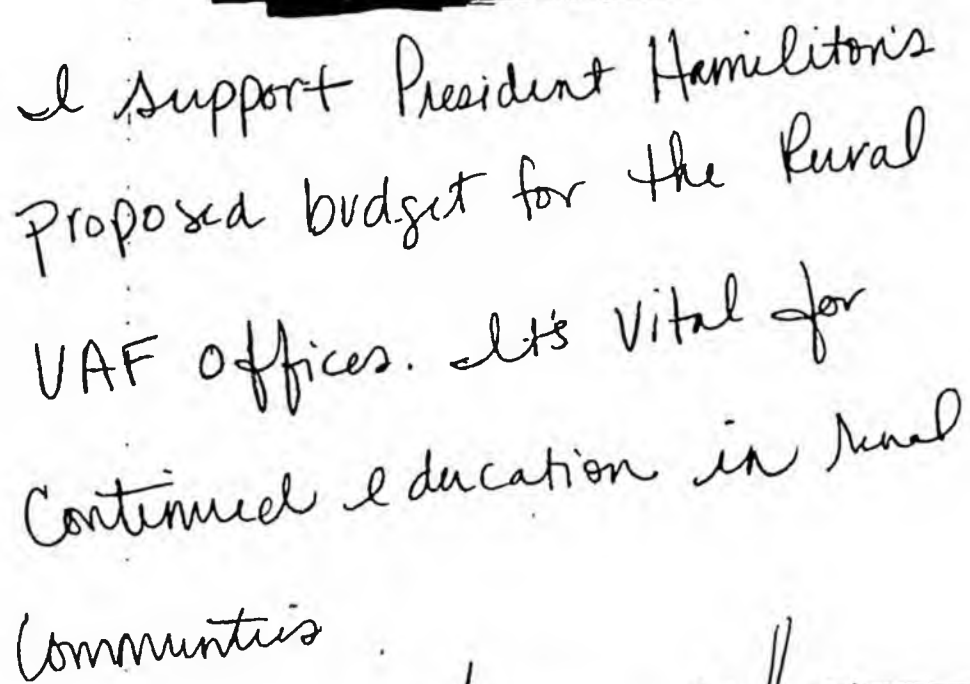 I support President Hamiliton's
proposed budget for the Rural
UAF Offices. It's Vital for
Continued education in rural
Communties